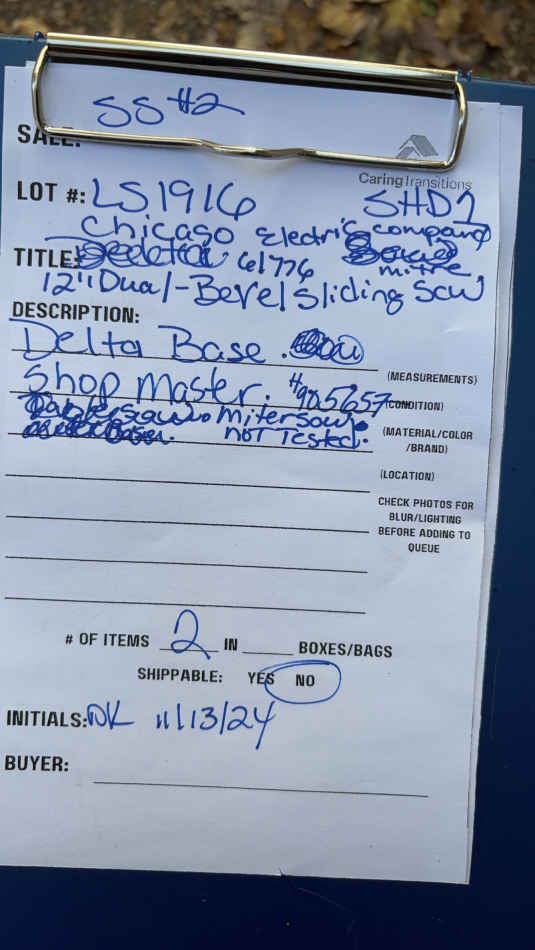 SS #2
SALE:
CaringTransitions
LOT #: LS1916 SHD1
Chicago Electric company
TITLE: 61776 mitre
12" Dual-Bevel Sliding saw
DESCRIPTION:
Delta Base.
(MEASUREMENTS)
Shop master. #905657
(CONDITION)
miter saw.
Not Tested.
(MATERIAL/COLOR
/BRAND)
(LOCATION)
CHECK PHOTOS FOR
BLUR/LIGHTING
BEFORE ADDING TO
QUEUE
# OF ITEMS 2 IN BOXES/BAGS
SHIPPABLE: YES NO
INITIALS: DK 11/13/24
BUYER: